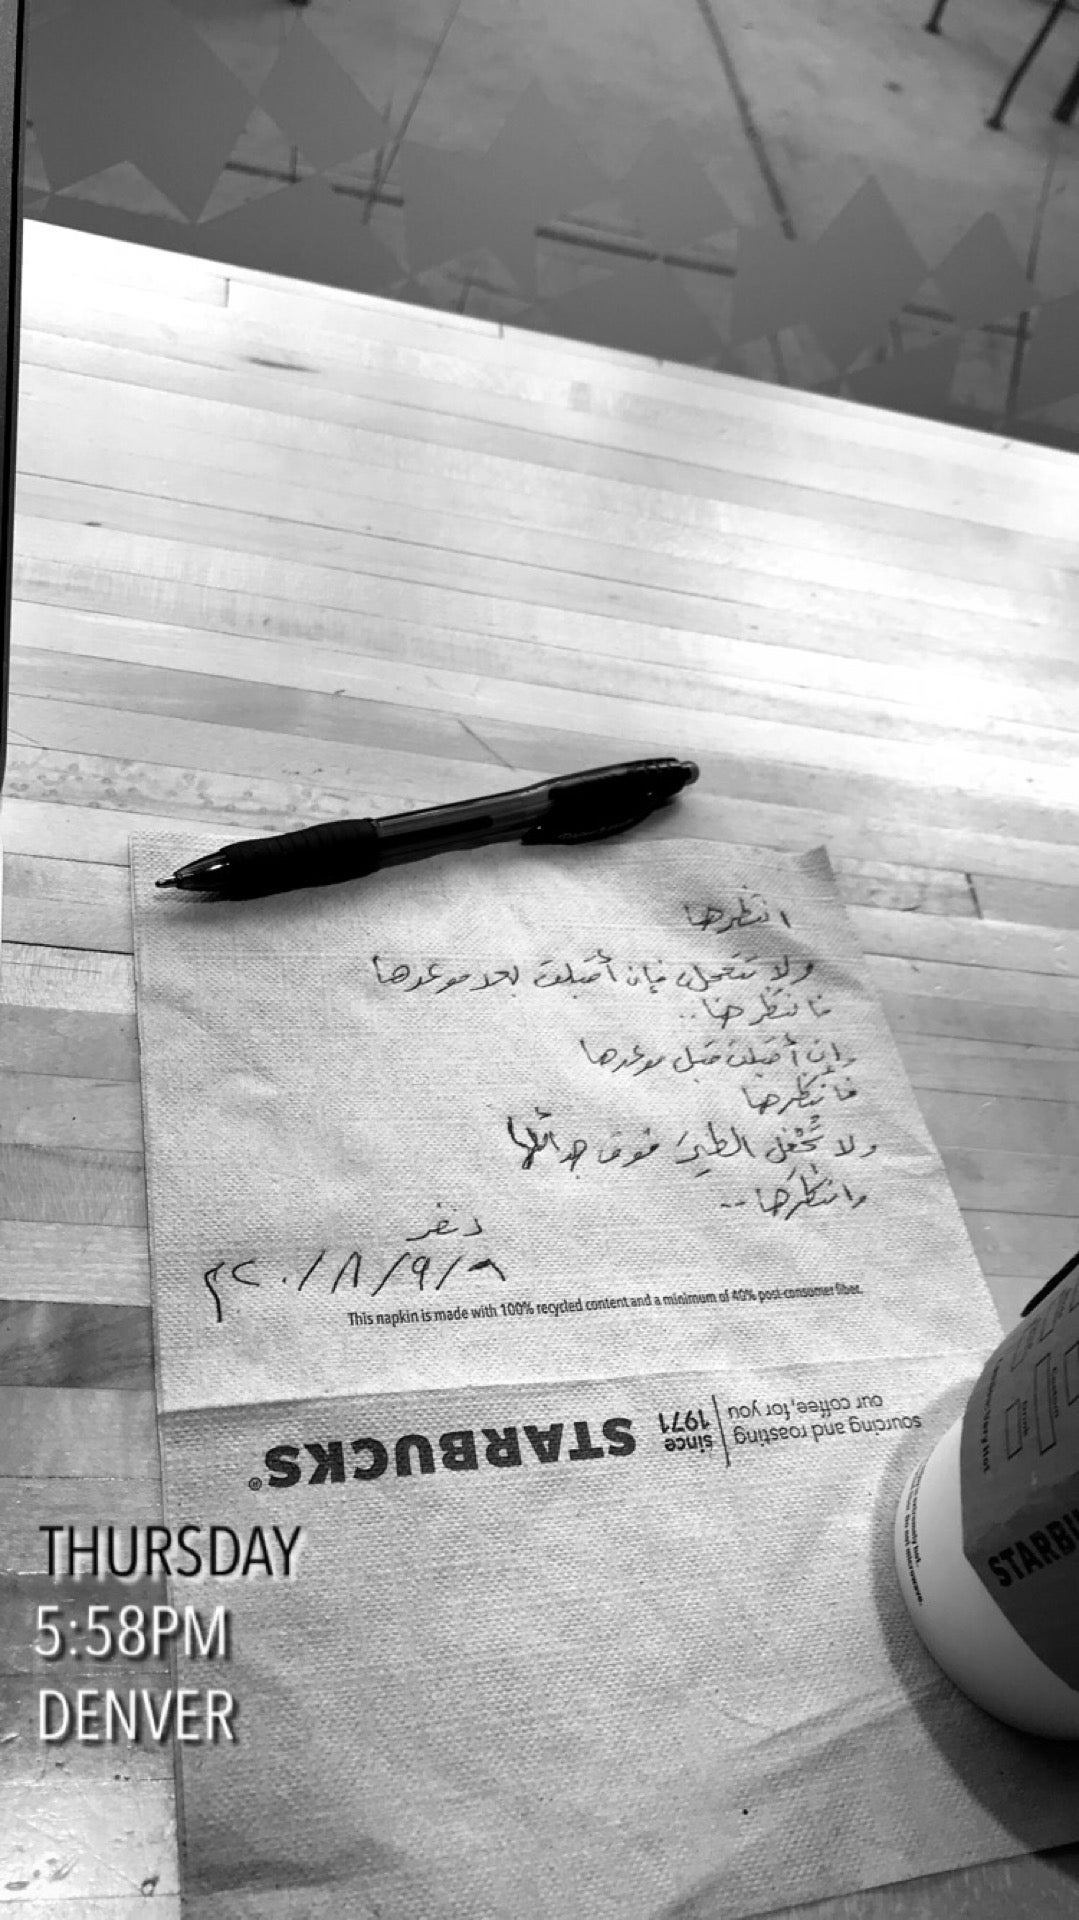 انتظرها
ولا تتعجل فإن أقبلت بعد موعدها
فانتظرها..
وإن أقبلت قبل موعدها
فانتظرها
ولا تُجْفِل الطيرَ فوق جدائلها
وانتظرها..
دنفر
٢٠١٨/٩/٨م
This napkin is made with 100% recycled content and a minimum of 40% post-consumer fiber.
STARBUCKS®
since 1971
sourcing and roasting our coffee, for you
STARBU
THURSDAY
5:58PM
DENVER